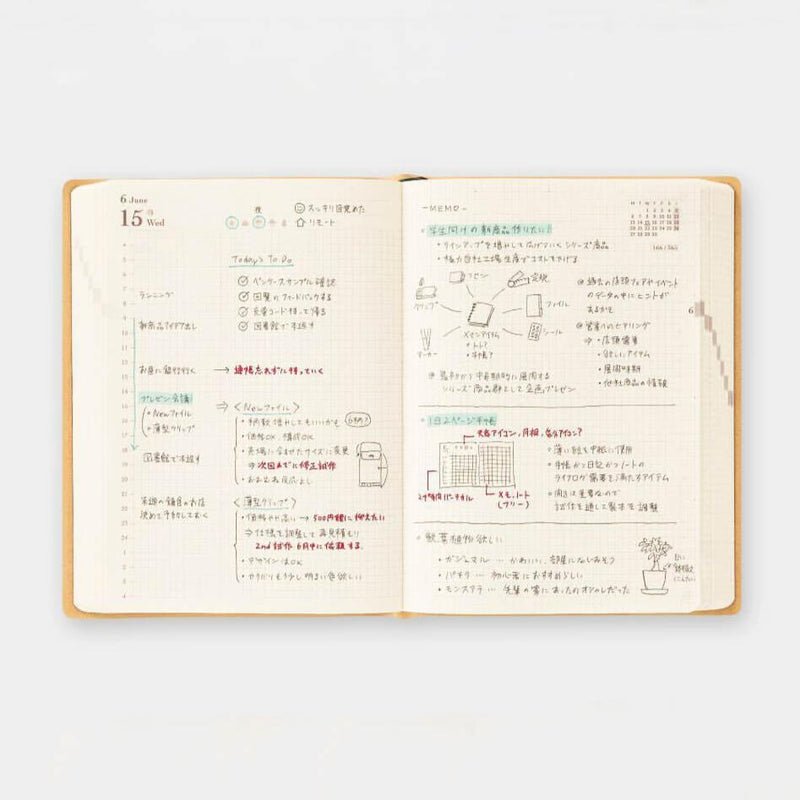 6 June
15 Wed
夜
スッキリ目覚めた
リモート
Today's To Do
ペンケースサンプル確認
回覧のフィードバックする
充電コード持って帰る
図書館で本返す
ランニング
新商品アイデア出し
お昼に銀行行く → 通帳忘れずに持っていく
プレゼン会議!
・Newファイル
・薄型クリップ
⇒ <Newファイル>
・柄数増やしてもいいかも
6柄?
・価格OK、構成OK
・売場に合わせたサイズに変更
⇒ 次回までに修正試作
・おおむね反応よし
図書館で本返す
来週の鎌倉のお店
決めて予約しておく
<薄型クリップ>
・価格やや高い → 500円程に抑えたい
⇒ 仕様を調整して再見積もり
2nd試作 6月中に依頼する。
・デザインはOK
・カラバリもう少し明るい色欲しい
4
5
6
7
8
9
10
11
12
13
14
15
16
17
18
19
20
21
22
23
24
1
2
3
4
-MEMO-
M T W T F S S
1 2 3 4 5
6 7 8 9 10 11 12
13 14 15 16 17 18 19
20 21 22 23 24 25 26
27 28 29 30
166/365
6
学生向けの新商品作りたい!
・ラインアップを増やして広げていくシリーズ商品
・極力自社工場生産でコスト下げる
フセン
定規
クリップ
ファイル
マーカー
シール
メインアイテム
・ノート?
・手帳?
過去の店頭フェアやイベント
のデータの中にヒントが
あるかも
営業へのヒアリング
⇒ ・店頭需要
・欲しいアイテム
・展開時期
・他社商品の情報
シリーズ商品群として企画プレゼン
1日2ページ手帳
天気アイコン、月相、気分アイコン?
24時間バーチカル
メモ、ノート
(フリー)
・薄い紙を中紙に使用
・手帳かつ日記かつノートの
ライフログ需要を満たすアイテム
・開きは重要なので
試作を通して製本を調整
観葉植物欲しい
・ガジュマル … かわいい、部屋になじみそう
・パキラ … 初心者におすすめらしい
・モンステラ … 先輩の家にあったのオシャレだった
白い
鉢植え
にしたい